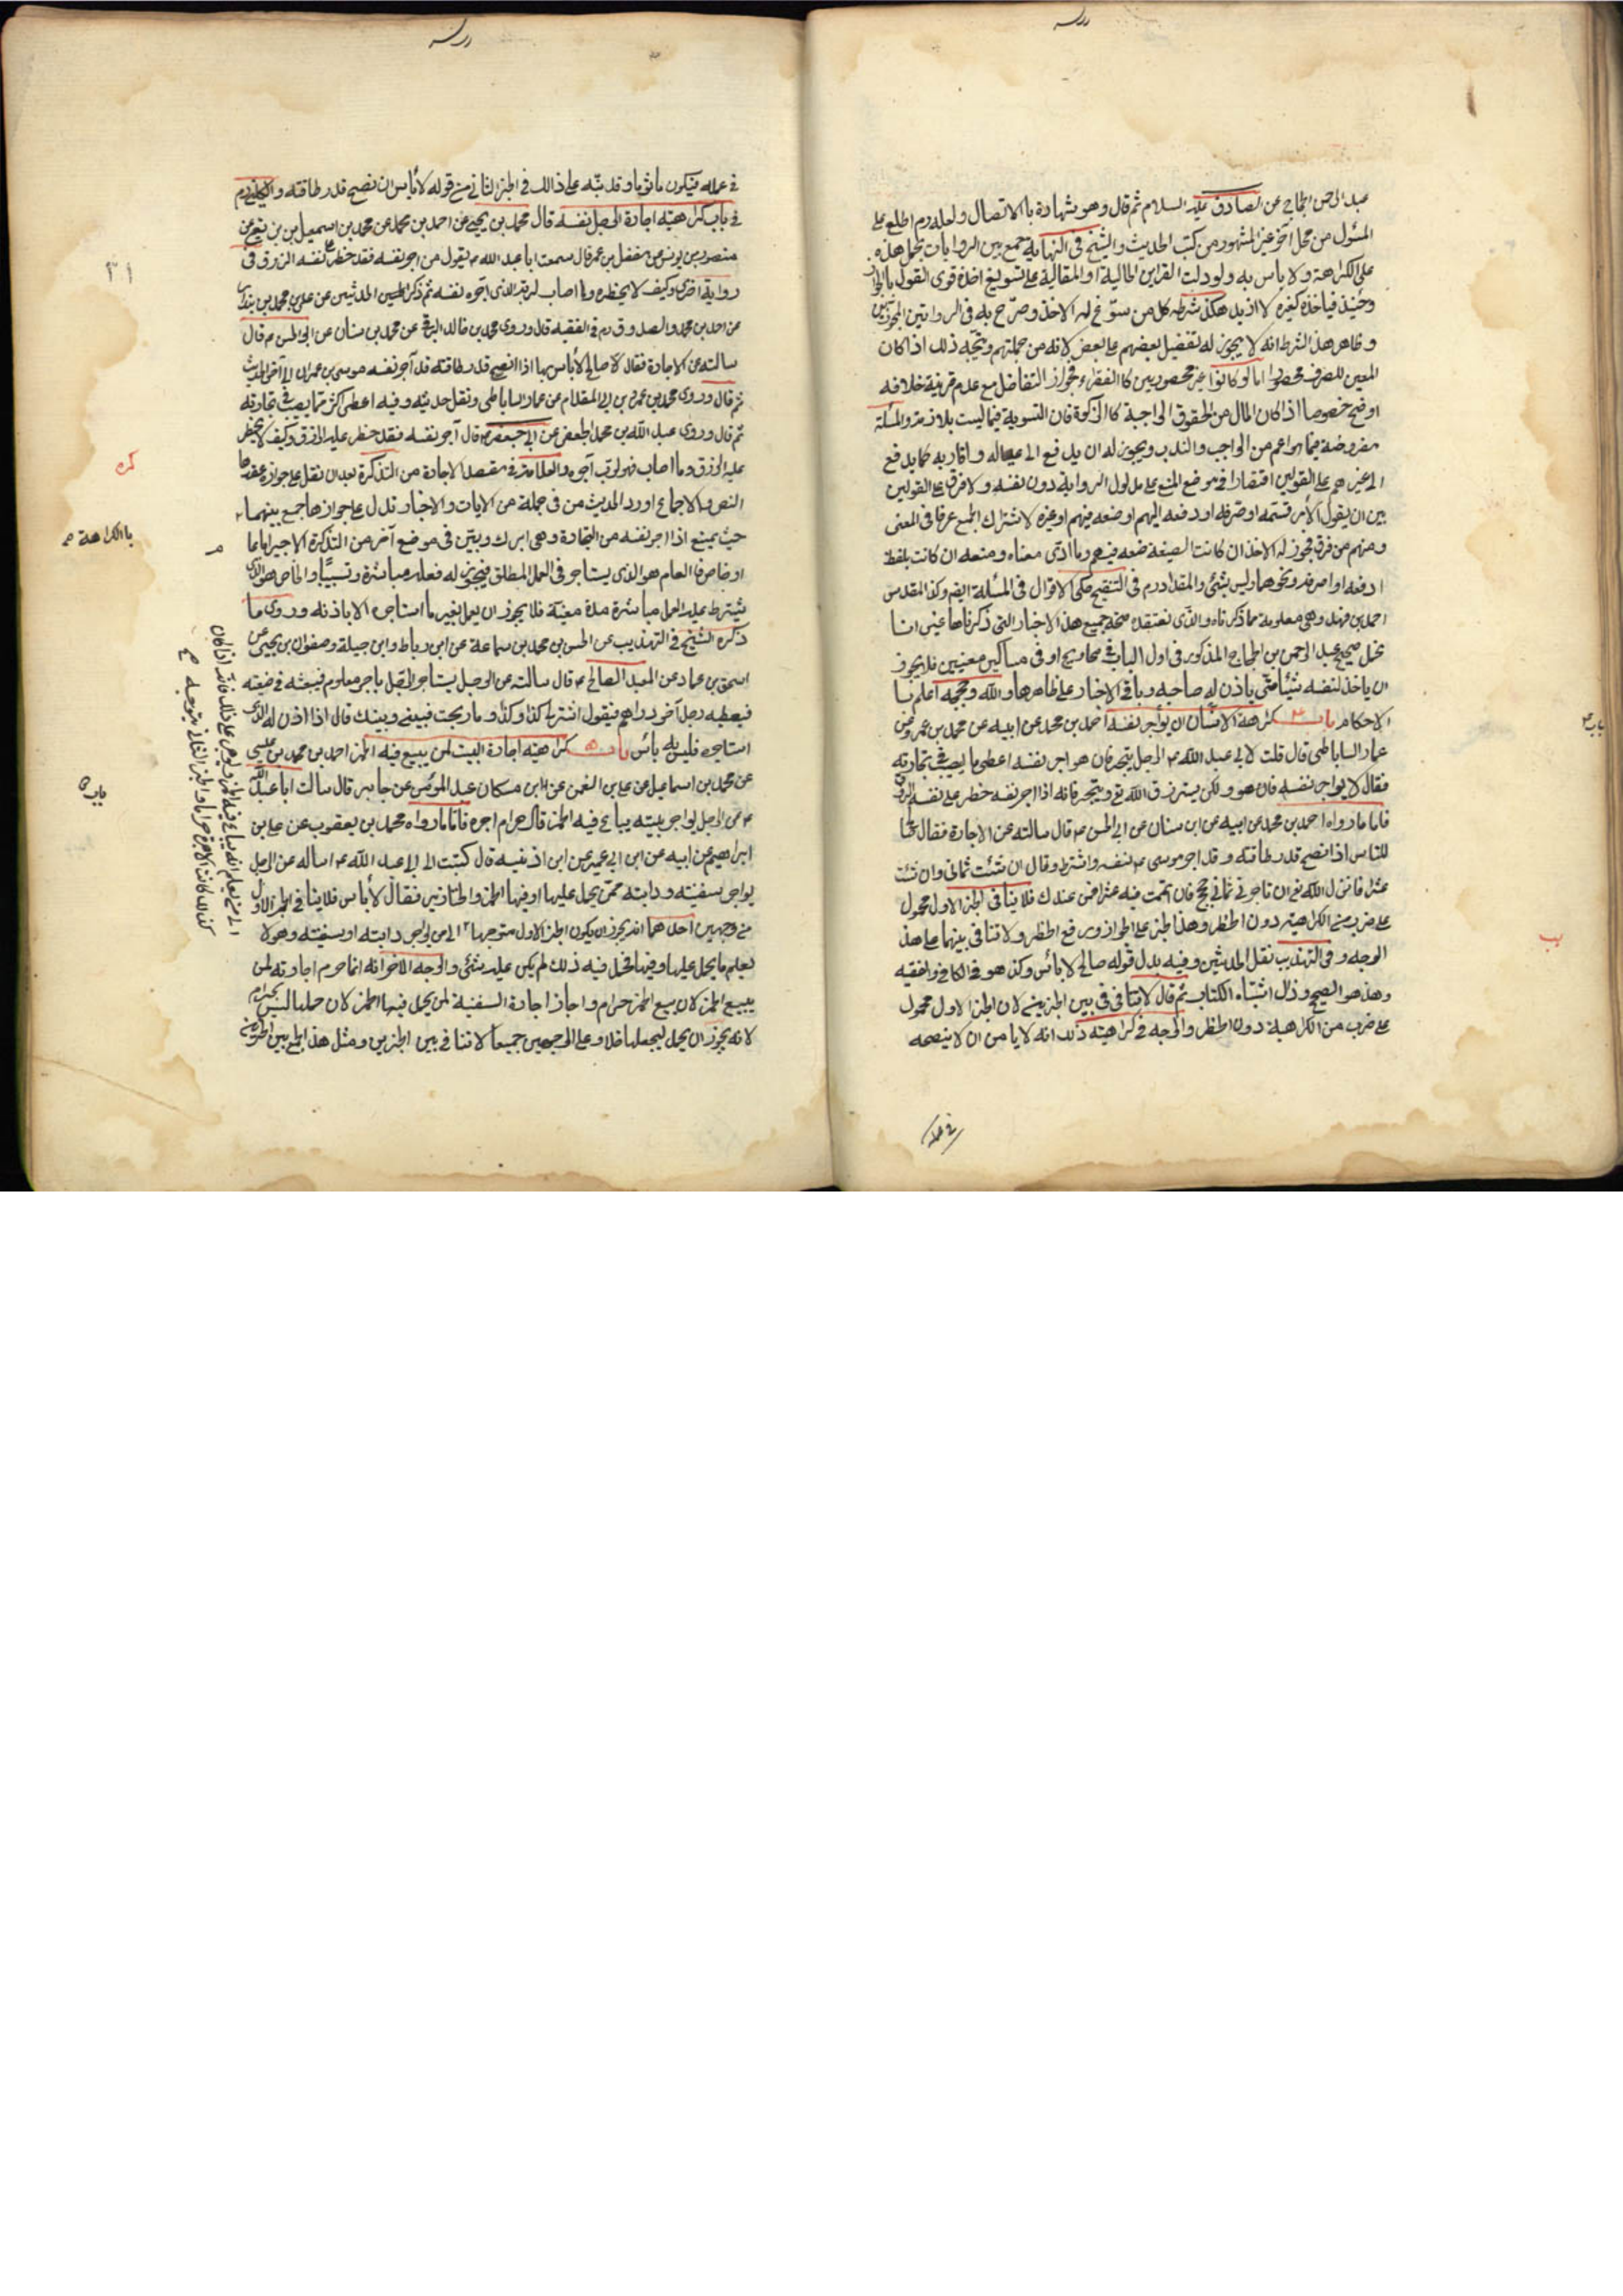 عبد الرحمن الحجاج عن الصادق عليه السلام ثم قال وهو شهادة بالاتصال ولعله رم اطلع على
المسئول من محل آخر غير المشهور من كتب الحديث والشيخ في النهاية جمع بين الروايات بحمل هذه
على الكراهة ولا باس به ولو دلت القراين الحالية او المقالية على تسويغ اخذه قوى القول بالجواز
وحينئذ فياخذ كغيره لا ازيد هكذا شرطه كل من سوّغ له الاخذ وصرّح به في الروايتين المجوزتين
وظاهر هذا الشرط انه لا يجوز له تفضيل بعضهم على بعض لانه من جملتهم ويتجه ذلك اذا كان
المعين للصرف محصورا اما لو كانوا غير محصورين كالفقراء فجواز التفاضل مع عدم قرينة خلافه
اوضح خصوصا اذا كان المال من الحقوق الواجبة كالزكوة فان التسوية فيها ليست بلازمة والمسئلة
مفروضة فيما هو اعم من الواجب والندب ويجوز له ان يدفع الى عياله واقاربه كما يدفع
الى غيرهم على القولين اقتصارا في موضع المنع على مدلول الرواية دون نفسه ولا فرق على القولين
بين ان يقول الآمر قسمته او صرفه او دفعه اليهم او ضعه فيهم او غيره لاشتراك الجمع عرفا في المعنى
ومنهم من فرق فجوز له الاخذ ان كانت الصيغة ضعه فيهم وما ادى معناه ومنعه ان كانت بلفظ
ادفعه او اصرفه ونحوها وليس بشئ والمقداد رم في التنقيح حكى الاقوال في المسئلة ايضم وكذا المقدس
احمد بن فهد وهي معلومة مما ذكرناه والذي نعتقده صحة جميع هذا الاخبار التي ذكرناها غير انا
نحمل صحيح عبد الرحمن بن الحجاج المذكور في اول الباب في محاويج او في مساكين معينين فلا يجوز
ان ياخذ لنفسه شيئا حتى ياذن له صاحبه وباقي الاخبار على ظاهرها والله وحججه اعلم بـ
الاحكام باب ٤ كراهة الانسان ان يواجر نفسه احمد بن محمد عن ابيه عن محمد بن عمرو عن
عمار الساباطى قال قلت لابي عبد الله ع الرجل يتجر فان هو اجر نفسه اعطى ما يصيب في تجارته
فقال لا يواجر نفسه فان هو ولكن يسترزق الله تع ويتجر فانه اذا اجر نفسه حظر على نفسه الرزق
فاما ما رواه احمد بن محمد عن ابيه عن ابن سنان عن ابي الحسن ع قال سالته عن الاجارة فقال
للناس اذا نصح قدر طاقته وقد اجر موسى ع نفسه واشترط وقال ان شئت ثماني وان شئت
عشرا فانزل الله تع ان تاجرني ثماني حجج فان اتممت فيه عشرا فمن عندك فلا ينافي الخبر الاول محمول
على ضرب من الكراهية دون الحظر وهذا الخبر على الجواز ورفع الحظر ولا تنافي بينهما على هذ
الوجه وفي التهذيب نقل الحديثين وفيه بدل قوله صالح لا باس وكذا هو في الكافي والفقيه
وهذا هو الصحيح وذاك اشتباه الكتاب ثم قال لا تنافي في بين الخبرين لان الخبر الاول محمول
على ضرب من الكراهية دون الحظر والوجه في كراهيته ذلك انه لا يامن ان لا ينصحه
في عمله
باب ٤
في عمله فيكون ماثوما وقد نبّه على ذالك في الخبر الثاني من قوله لا باس ان نصح قدر طاقته والكليني رم
في باب كراهية اجارة الرجل نفسه قال محمد بن يحيى عن احمد بن محمد عن محمد بن اسمعيل بن بزيع عن
منصور بن يونس عن مفضل بن عمر قال سمعت ابا عبد الله ع يقول من اجر نفسه فقد حظر على نفسه الرزق وفى
رواية اخرى وكيف لا يحظره وما اصاب لربه الذى آجره نفسه ثم ذكر الحديثين عن علي بن محمد بن بندار
عن احمد بن محمد والصدوق رم في الفقيه قال وروى محمد بن خالد البرقي عن محمد بن سنان عن ابي الحسن ع قال
سالته عن الاجارة فقال لا صالح لا باس بها اذا نصح قدر طاقته قد آجر نفسه موسى بن عمران الى آخر الحديث
ثم قال وروى محمد بن عمرو بن ابي المقدام عن عمار الساباطى ونقل حديثه وفيه اعطى اكثر مما يصيب في تجارته
ثم قال وروى عبد الله بن محمد الجعفى عن ابي جعفر ع قال آجر نفسه فقد حظر عليه الرزق وكيف لا يحظر
عليه الرزق وما اصاب فهو لرب آجره والعلامة في مقصد الاجارة من التذكرة بعد ان نقل على جوازه عقدها
النص والاجماع اورد الحديث من في جملة من الايات والاخبار تدل على جوازها جمع بينهما
حيث يمنع اذا اجر نفسه من التجارة وهي ابرك وبيّن في موضع آخر من التذكرة الاجير اما عام
او خاص فالعام هو الذى يستاجر في العمل المطلق فيجوز له فعله مباشرة وتسبيبا والخاص هو الذى
يشترط عليه العمل مباشرة مدة معينة فلا يجوز ان يعمل بغير ما استاجره الا باذنه وروى ما
ذكره الشيخ في التهذيب عن الحسن بن محمد بن سماعة عن ابن رباط وابن جبلة وصفوان بن يحيى عن
اسحق بن عمار عن العبد الصالح ع قال سالته عن الرجل يستاجر الرجل باجر معلوم فيبعثه في ضيعته
فيعطيه رجل آخر دراهم فيقول اشتر بها كذا وكذا وما ربحت فبيني وبينك قال اذا اذن له الذى
استاجره فليس به باس باب ٥ كراهية اجارة البيت لمن يبيع فيه الخمر احمد بن محمد بن عيسى
عن محمد بن اسماعيل عن على بن النعمن عن ابن مسكان عبد المومن عن جابر قال سالت ابا عبد الله
ع عن الرجل يواجر بيته يباع فيه الخمر قال حرام اجره فاما ما رواه محمد بن يعقوب عن على بن
ابراهيم عن ابيه عن ابن ابي عمير عن ابن اذنيه قال كتبت الى ابي عبد الله ع اساله عن الرجل
يواجر سفينته ودابته ممن يحمل عليها او فيها الخمر والخنازير فقال لا باس فلا ينافي الخبر الاول
من وجهين احدهما انه يجوز ان يكون الخبر الاول متوجها الى من يواجر دابته او سفينته وهو لا
يعلم ما يحمل عليها وفيها فحمل فيه ذلك لم يكن عليه شئ والوجه الاخر انه انما حرم اجارته لمن
يبيع الخمر لان بيع الخمر حرام واجاز اجارة السفينة لمن يحمل فيها الخمر لان حملها ليس بحرام
لانه يجوز ان يحمل ليجعلها خلا وعلى الوجهين جميعا لا تنافي بين الخبرين ومثل هذا الجمع بين الخبرين
كره
بالكراهة
باب ٥